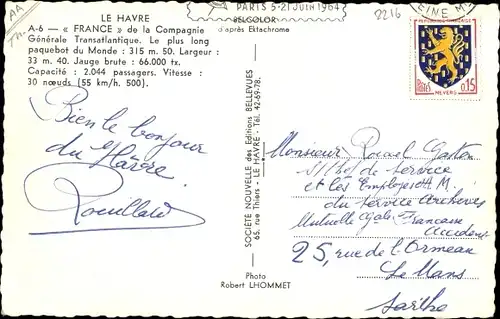 AA
LE HAVRE
A-6 — « FRANCE » de la Compagnie
Générale Transatlantique. Le plus long
paquebot du Monde : 315 m. 50. Largeur :
33 m. 40. Jauge brute : 66.000 tx.
Capacité : 2.044 passagers. Vitesse :
30 nœuds (55 km/h. 500).
Bien le bonjour
du Hâvre
Rouillard
PARIS 5-21 JUIN 1964
BELCOLOR
d'après Ektachrome
SOCIÉTÉ NOUVELLE des Éditions BELLEVUES
65, rue Thiers - LE HAVRE - Tél. 42-69-78.
Photo
Robert LHOMMET
2216
SEINE
RÉPUBLIQUE FRANÇAISE
POSTES 0,15
NEVERS
Monsieur Gaston
de service
et les Employés
du service Archives
Mutuelle Gale Francaise
Accidents
25, rue de l'Ormeau
Le Mans
Sarthe